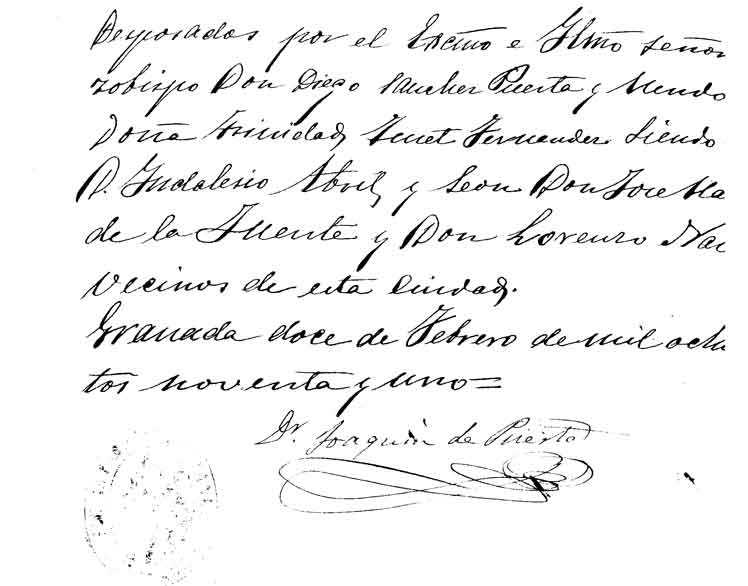 Desposados por el Excmo e Ylmo señor
zobispo Don Diego Sancher Puerta y Mendo
Doña Trinidad Tenet Fernander. Siendo
D. Yndalesio Abril y Leon Don Jose Ma
de la Fuente y Don Lorenzo Nav
vecinos de esta Ciudad.
Granada doce de Febrero de mil ochi
tos noventa y uno=
Dr. Joaquin de Puerta